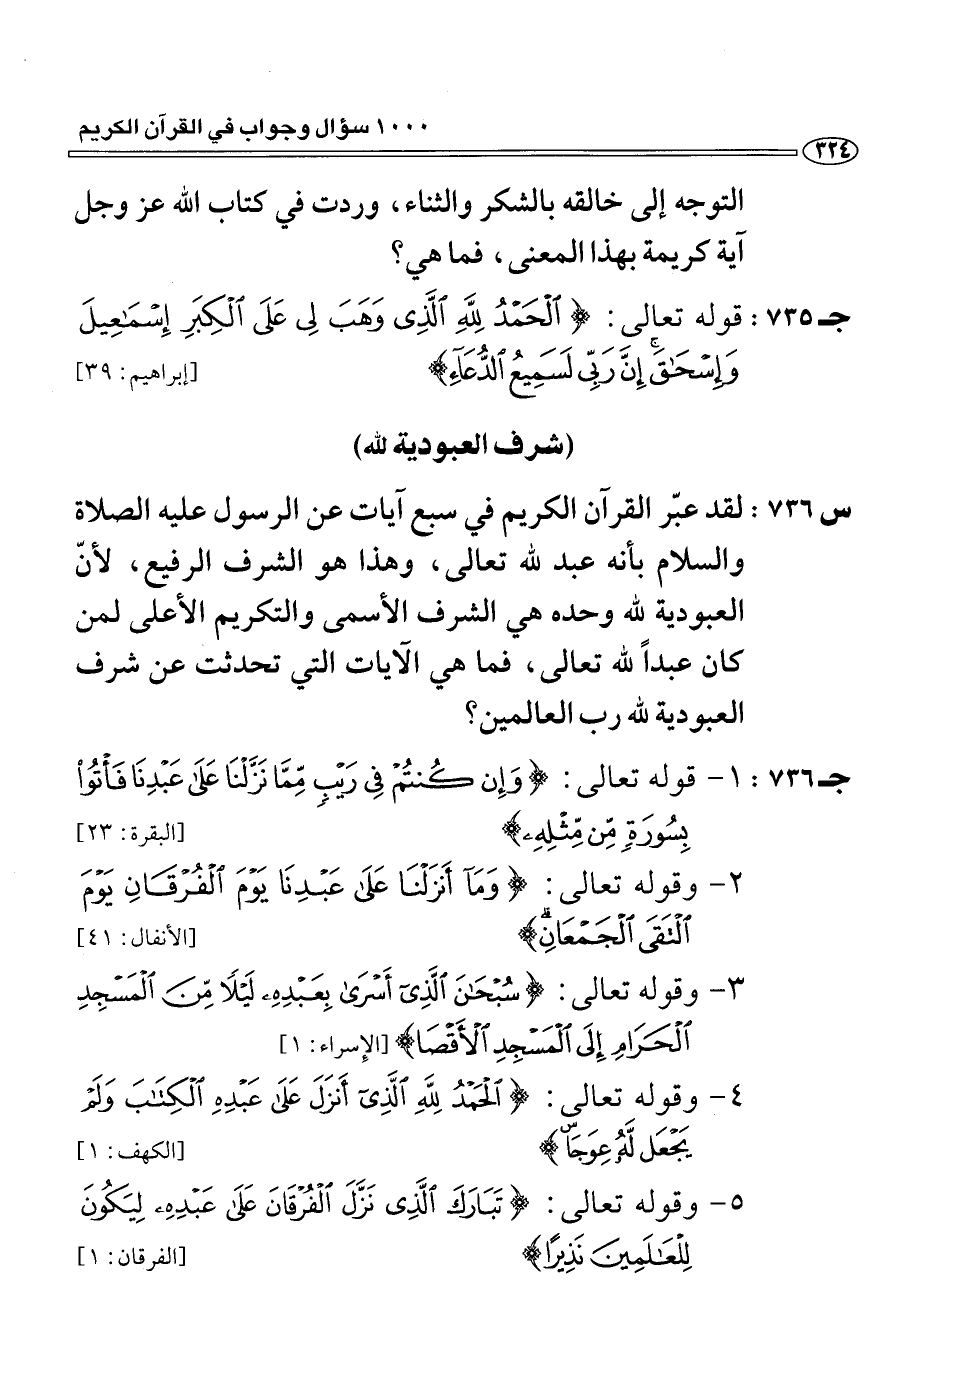 ١٠٠٠ سؤال وجواب في القرآن الكريم
٣٢٤
التوجه إلى خالقه بالشكر والثناء، وردت في كتاب الله عز وجل
آية كريمة بهذا المعنى، فما هي؟
جـ ٧٣٥ : قوله تعالى: ﴿ ٱلۡحَمۡدُ لِلَّهِ ٱلَّذِى وَهَبَ لِى عَلَى ٱلۡكِبَرِ إِسۡمَـٰعِيلَ
وَإِسۡحَـٰقَۚ إِنَّ رَبِّى لَسَمِيعُ ٱلدُّعَآءِ﴾ [إبراهيم: ٣٩]
(شرف العبودية لله)
س ٧٣٦ : لقد عبّر القرآن الكريم في سبع آيات عن الرسول عليه الصلاة
والسلام بأنه عبد لله تعالى، وهذا هو الشرف الرفيع، لأنّ
العبودية لله وحده هي الشرف الأسمى والتكريم الأعلى لمن
كان عبداً لله تعالى، فما هي الآيات التي تحدثت عن شرف
العبودية لله رب العالمين؟
جـ ٧٣٦ : ١- قوله تعالى: ﴿ وَإِن كُنتُمۡ فِى رَيۡبٍ مِّمَّا نَزَّلۡنَا عَلَىٰ عَبۡدِنَا فَأۡتُواْ
بِسُورَةٍ مِّن مِّثۡلِهِۦ﴾ [البقرة: ٢٣]
٢- وقوله تعالى: ﴿ وَمَآ أَنزَلۡنَا عَلَىٰ عَبۡدِنَا يَوۡمَ ٱلۡفُرۡقَانِ يَوۡمَ
ٱلۡتَقَى ٱلۡجَمۡعَانِۗ﴾ [الأنفال: ٤١]
٣- وقوله تعالى: ﴿ سُبۡحَـٰنَ ٱلَّذِىٓ أَسۡرَىٰ بِعَبۡدِهِۦ لَيۡلًا مِّنَ ٱلۡمَسۡجِدِ
ٱلۡحَرَامِ إِلَى ٱلۡمَسۡجِدِ ٱلۡأَقۡصَا﴾ [الإسراء: ١]
٤- وقوله تعالى: ﴿ ٱلۡحَمۡدُ لِلَّهِ ٱلَّذِىٓ أَنزَلَ عَلَىٰ عَبۡدِهِ ٱلۡكِتَـٰبَ وَلَمۡ
يَجۡعَل لَّهُۥ عِوَجَاۜ﴾ [الكهف: ١]
٥- وقوله تعالى: ﴿ تَبَارَكَ ٱلَّذِى نَزَّلَ ٱلۡفُرۡقَانَ عَلَىٰ عَبۡدِهِۦ لِيَكُونَ
لِلۡعَـٰلَمِينَ نَذِيرًا﴾ [الفرقان: ١]